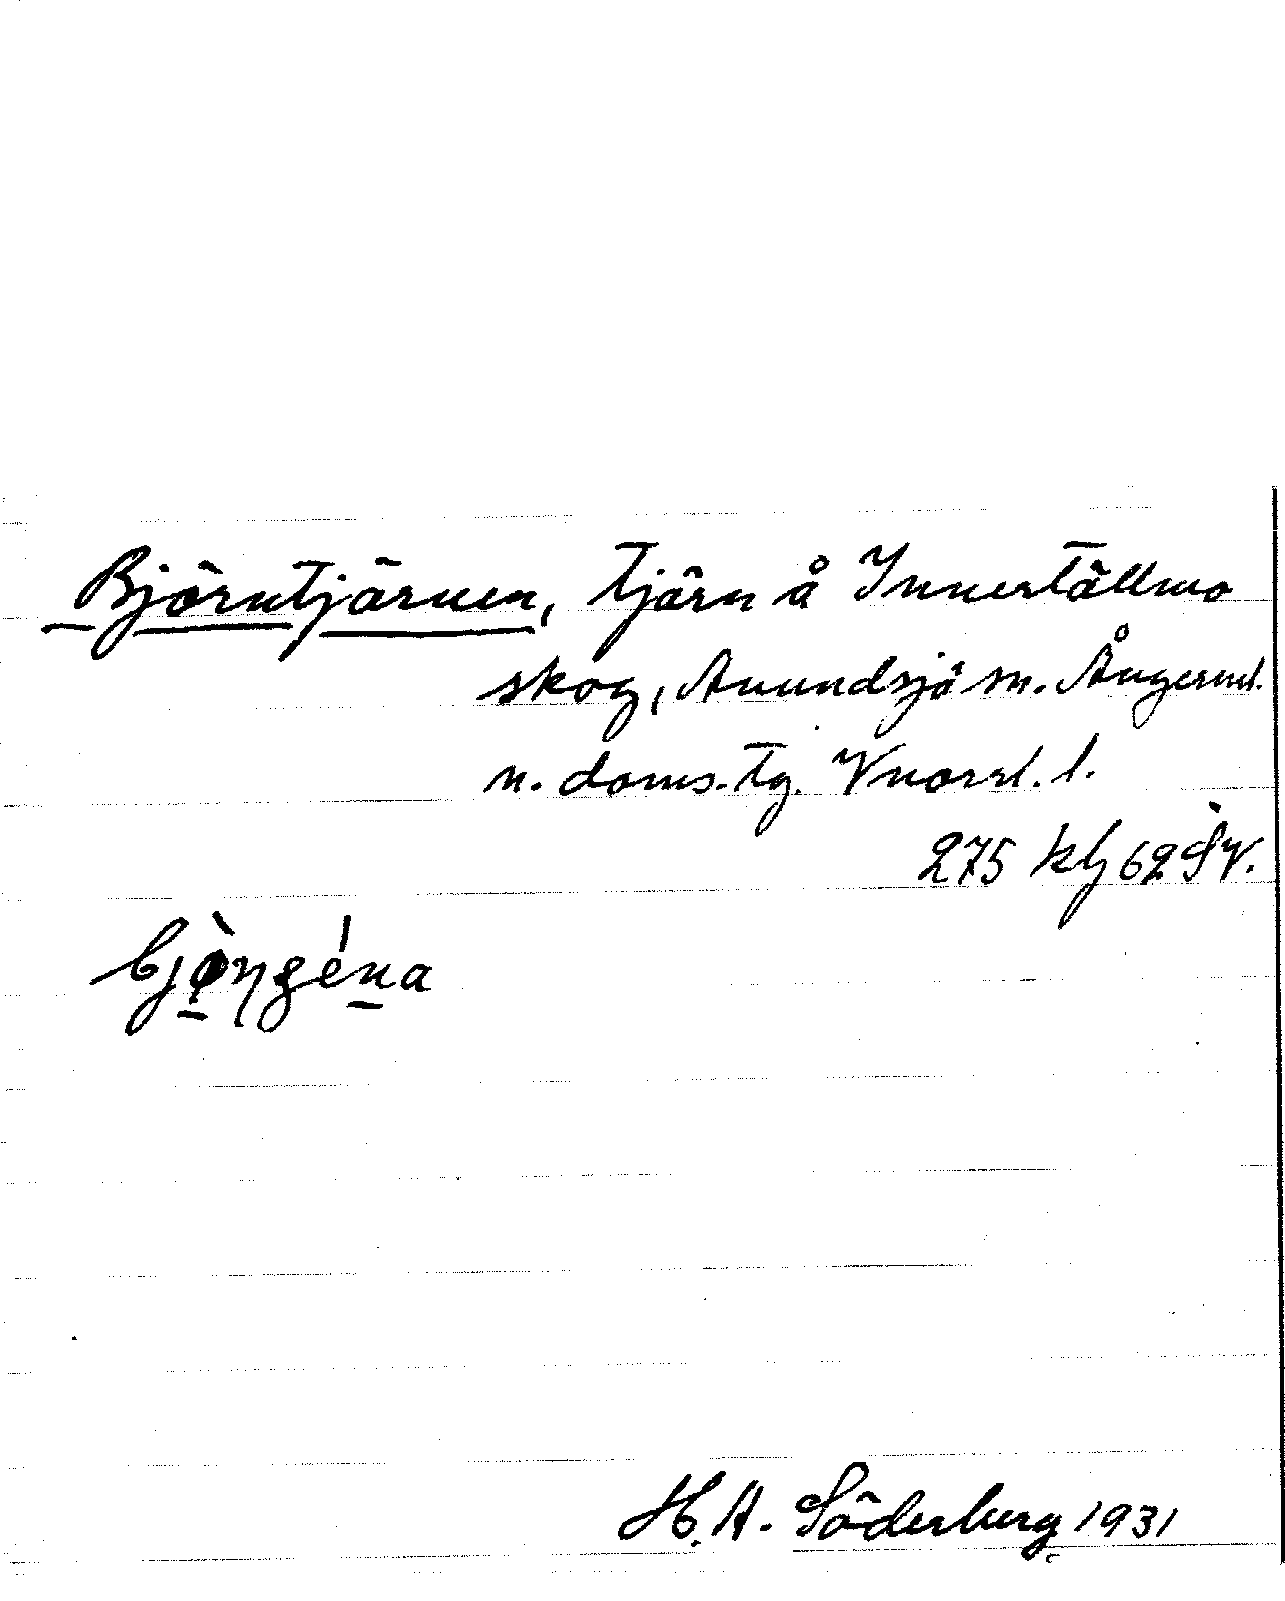 Björntjärnen, tjärn å Innertällmo
skog, Anundsjö sn. Ångerml.
n. doms. tg. Vnorrl. l.
275 klj 62 SV.
H. A. Söderberg 1931